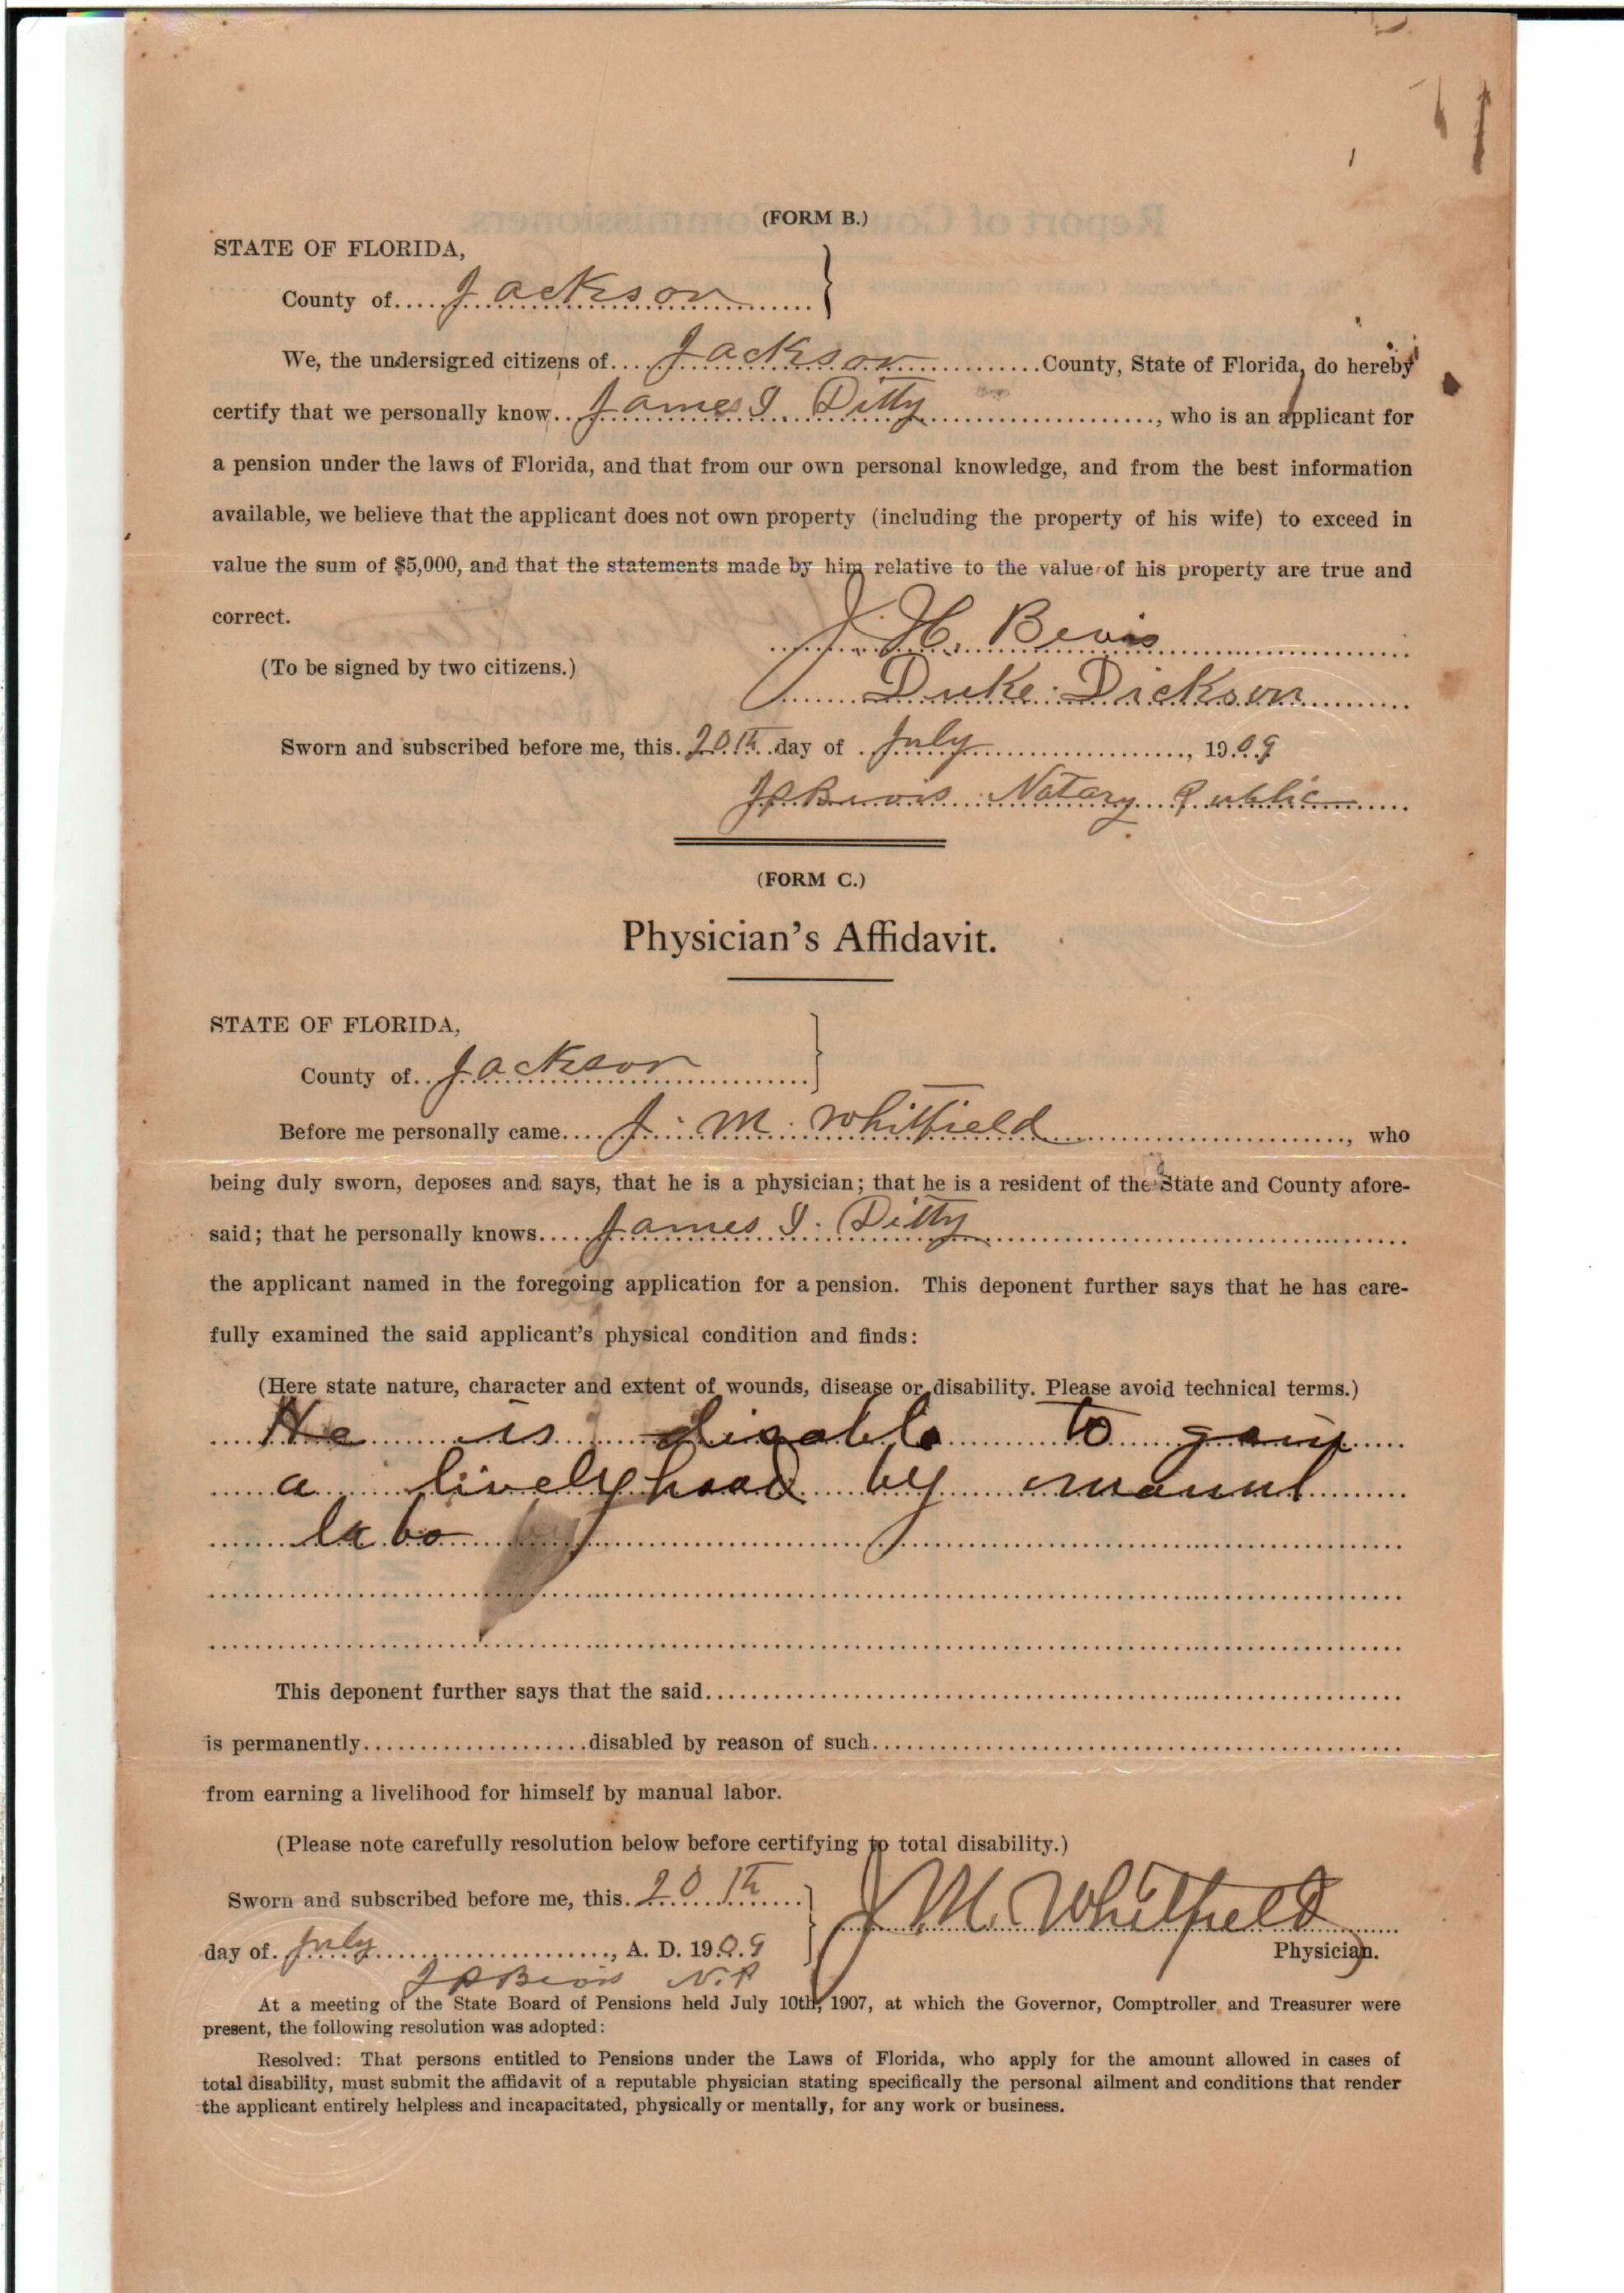 (FORM B.)
STATE OF FLORIDA,
County of Jackson
We, the undersigned citizens of Jackson County, State of Florida, do hereby
certify that we personally know James I. Ditty, who is an applicant for
a pension under the laws of Florida, and that from our own personal knowledge, and from the best information
available, we believe that the applicant does not own property (including the property of his wife) to exceed in
value the sum of $5,000, and that the statements made by him relative to the value of his property are true and
correct.
J. H. Bevis
(To be signed by two citizens.)
Duke Dickson
Sworn and subscribed before me, this 20th day of July, 1909
J P Bevis Notary Public
(FORM C.)
Physician's Affidavit.
STATE OF FLORIDA,
County of Jackson
Before me personally came J. M. Whitfield, who
being duly sworn, deposes and says, that he is a physician; that he is a resident of the State and County afore-
said; that he personally knows James I. Ditty
the applicant named in the foregoing application for a pension. This deponent further says that he has care-
fully examined the said applicant's physical condition and finds:
(Here state nature, character and extent of wounds, disease or disability. Please avoid technical terms.)
He is disable to gain
a livelyhood by manul
labo
This deponent further says that the said
is permanently disabled by reason of such
from earning a livelihood for himself by manual labor.
(Please note carefully resolution below before certifying to total disability.)
Sworn and subscribed before me, this 20th
J M. Whitfield
day of July, A. D. 1909
Physician.
J P Bevis N.P
At a meeting of the State Board of Pensions held July 10th, 1907, at which the Governor, Comptroller and Treasurer were
present, the following resolution was adopted:
Resolved: That persons entitled to Pensions under the Laws of Florida, who apply for the amount allowed in cases of
total disability, must submit the affidavit of a reputable physician stating specifically the personal ailment and conditions that render
the applicant entirely helpless and incapacitated, physically or mentally, for any work or business.